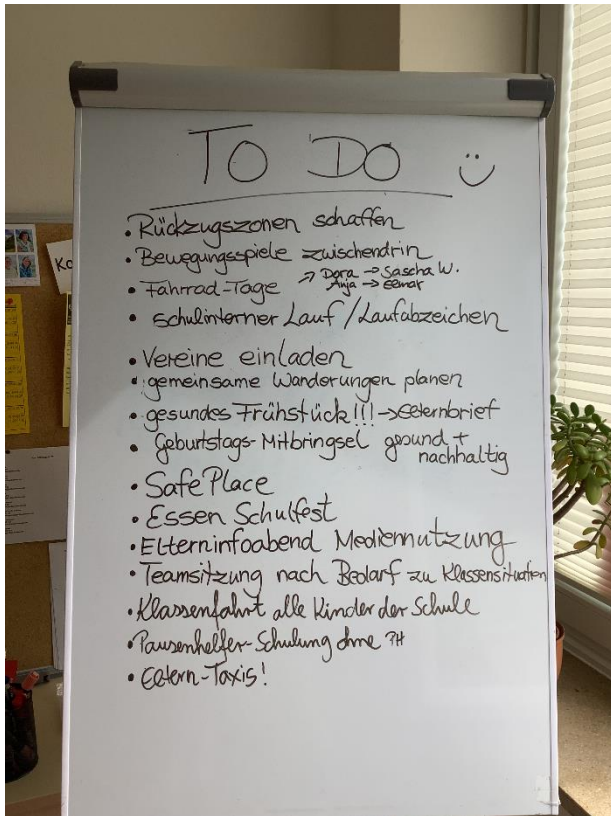 TO DO
• Rückzugszonen schaffen
• Bewegungsspiele zwischendrin
• Fahrrad-Tage → Dora → Sascha W.
Anja → Elmar
• schulinterner Lauf / Laufabzeichen
• Vereine einladen
• gemeinsame Wanderungen planen
• gesundes Frühstück!!! → Elternbrief
• Geburtstags-Mitbringsel gesund +
nachhaltig
• Safe Place
• Essen Schulfest
• Elterninfoabend Mediennutzung
• Teamsitzung nach Bedarf zu Klassensituation
• Klassenfahrt alle Kinder der Schule
• Pausenhelfer-Schulung ohne PH
• Eltern-Taxis!
Ko